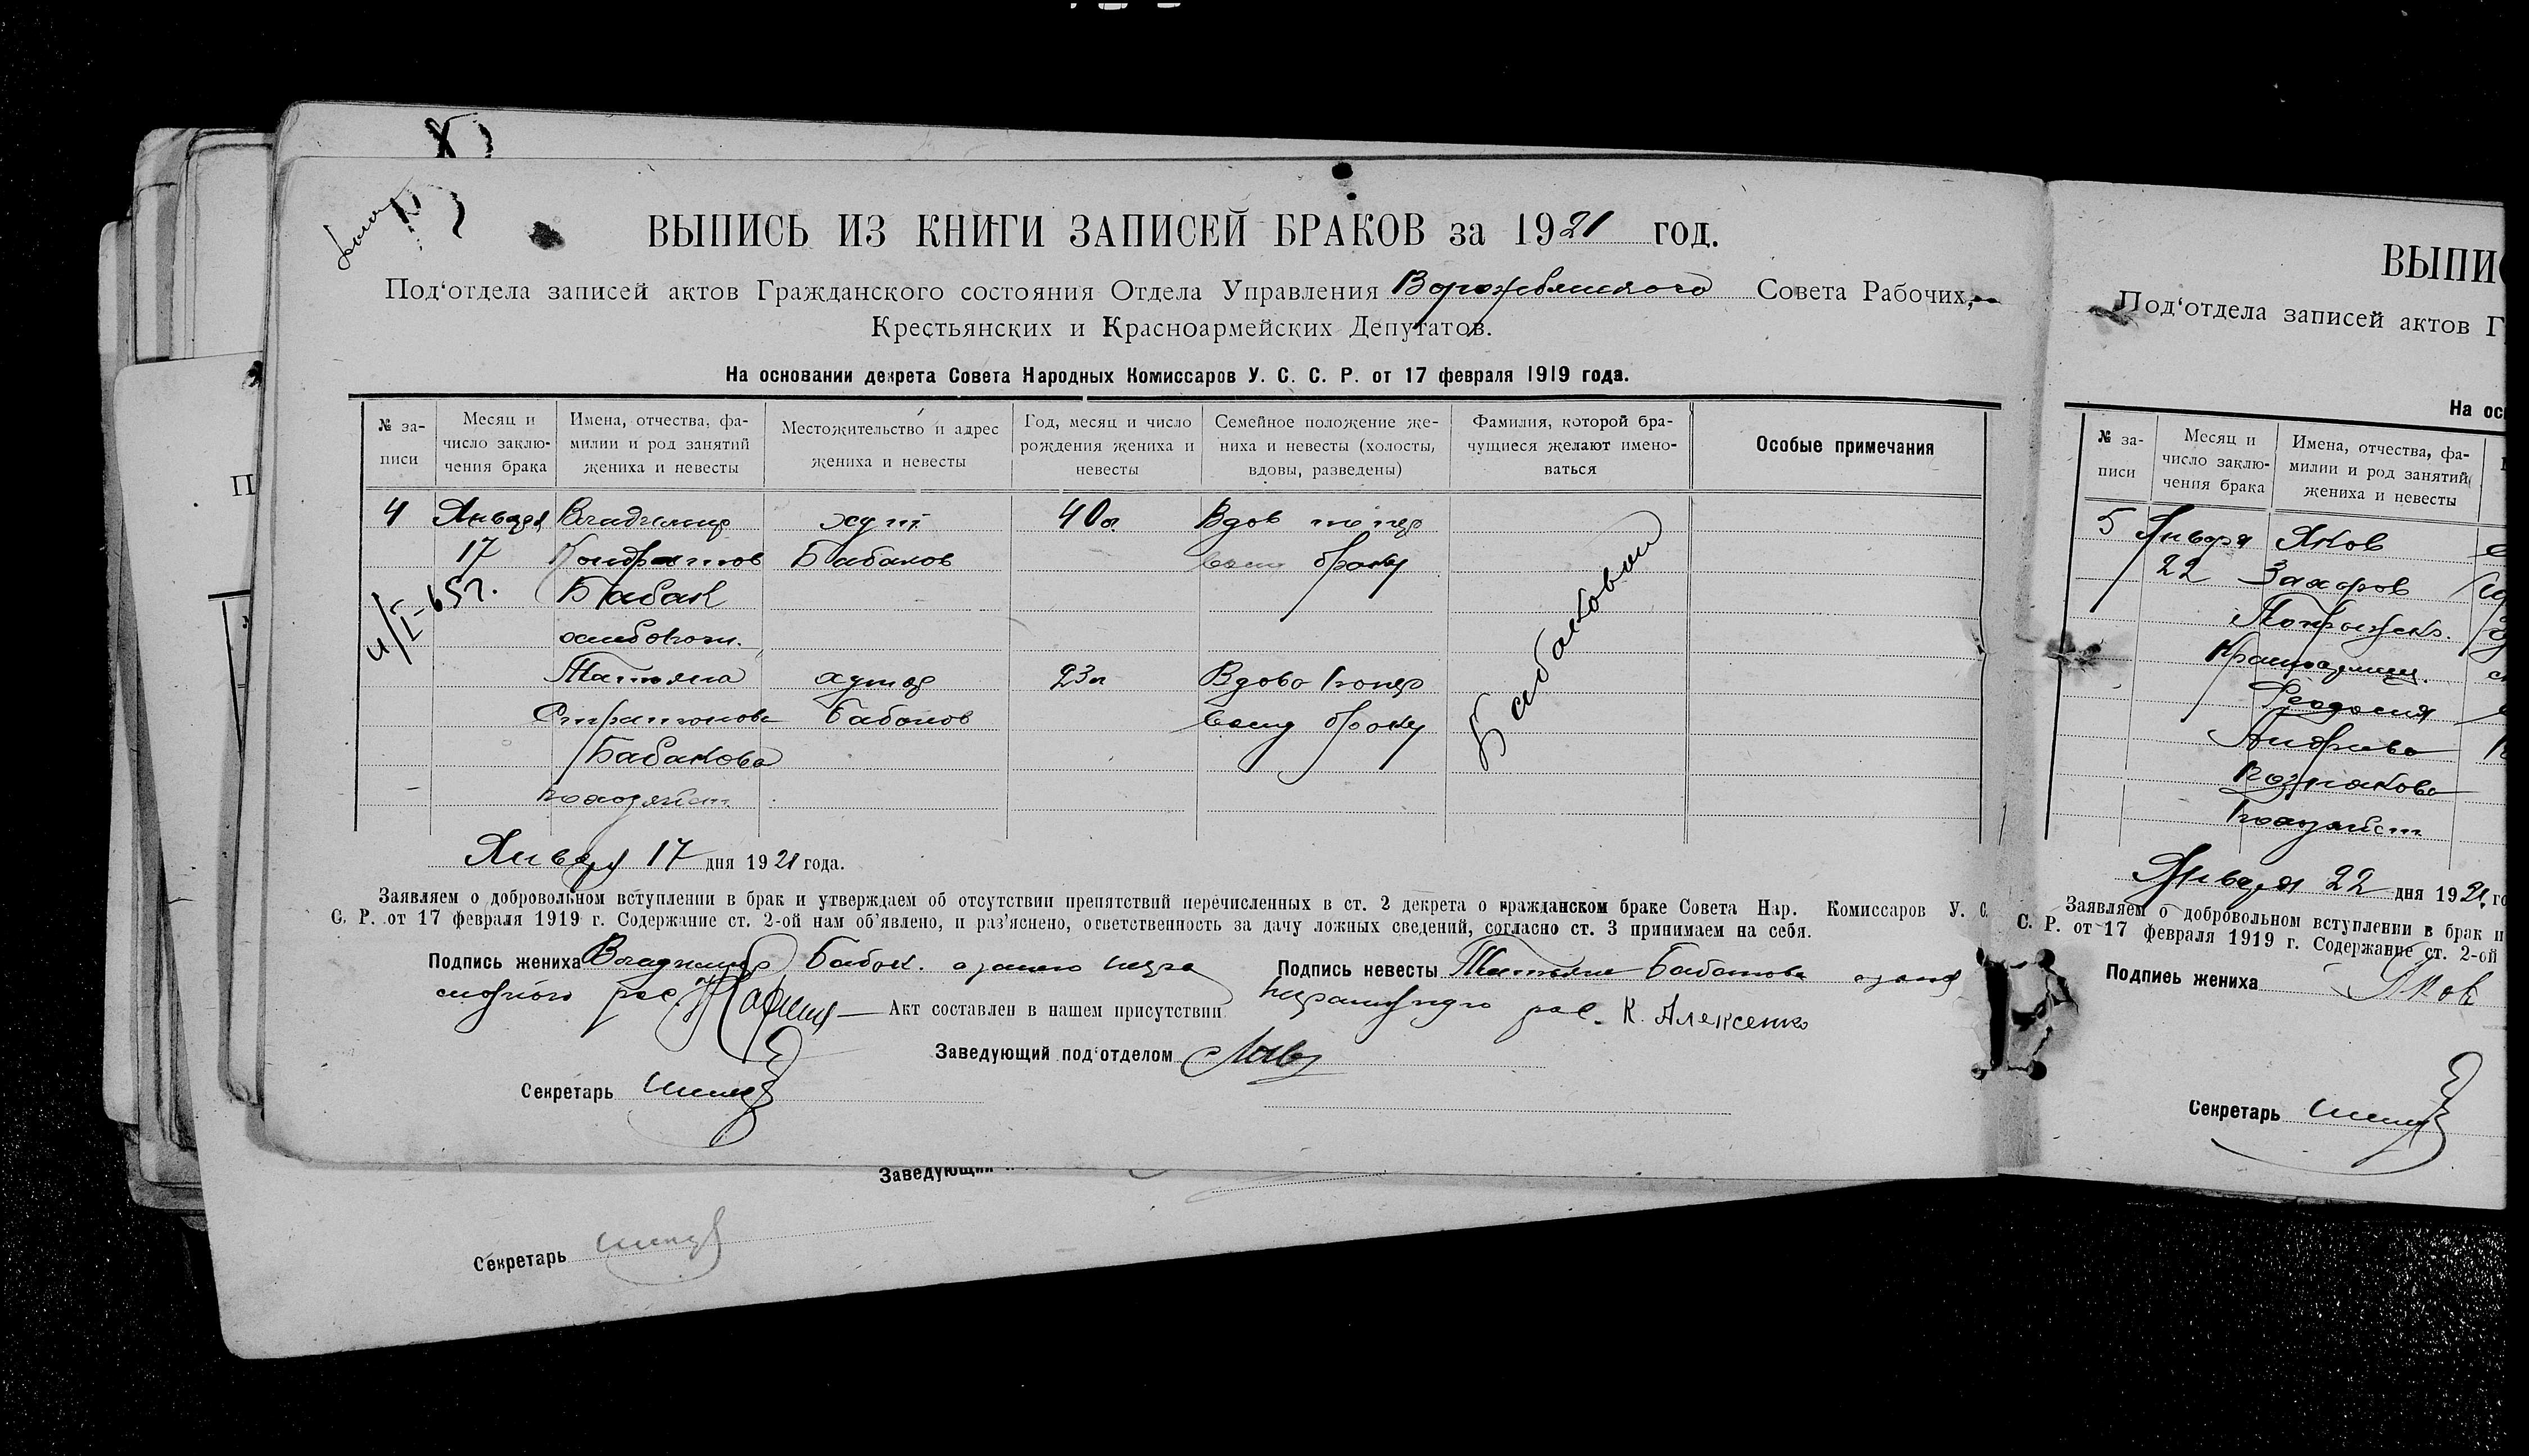 ВЫПИСЬ ИЗ КНИГИ ЗАПИСЕЙ БРАКОВ за 1921 год.
Под‘отдела записей актов Гражданского состояния Отдела Управления Ворожбянского Совета Рабочих,
Крестьянских и Красноармейских Депутатов.
На основании декрета Совета Народных Комиссаров У. С. С. Р. от 17 февраля 1919 года.
№ за-
писи
Месяц и
число заклю-
чения брака
Имена, отчества, фа-
милии и род занятий
жениха и невесты
Местожительство и адрес
жениха и невесты
Год, месяц и число
рождения жениха и
невесты
Семейное положение же-
ниха и невесты (холосты,
вдовы, разведены)
Фамилия, которой бра-
чущиеся желают имено-
ваться
Особые примечания
4 Января Владимир хут 40л Вдов по пер
17 Кондратов Бабаков браку
Бабак
4/I-65г.
хлебопаш.
Татьяна хутор 23л Вдова по пер
Стратонова Бабаков браку
Бабакова
Бабаковы
Января 17 дня 1921 года.
Заявляем о добровольном вступлении в брак и утверждаем об отсутствии препятствий перечисленных в ст. 2 декрета о гражданском браке Совета Нар. Комиссаров У. С.
С. Р. от 17 февраля 1919 г. Содержание ст. 2-ой нам об’явлено, и раз’яснено, ответственность за дачу ложных сведений, согласно ст. 3 принимаем на себя.
Подпись жениха Владимир Бабак. а за него негра
мотного рас.
Подпись невесты Татьяна Бабакова а за нея
неграмотную рас. К. Алексенко
Акт составлен в нашем присутствии
Заведующий под‘отделом
Секретарь
Заведующий
Секретарь
ВЫПИС
Под‘отдела записей актов Г
На осн
№ за-
писи
Месяц и
число заклю-
чения брака
Имена, отчества, фа-
милии и род занятий
жениха и невесты
5 Января Яков
22 Захаров
Красноармеец.
Феодосия
Андреева
Января 22 дня 1921 го
Заявляем о добровольном вступлении в брак и
С. Р. от 17 февраля 1919 г. Содержание ст. 2-ой
Подпись жениха Яков
Секретарь